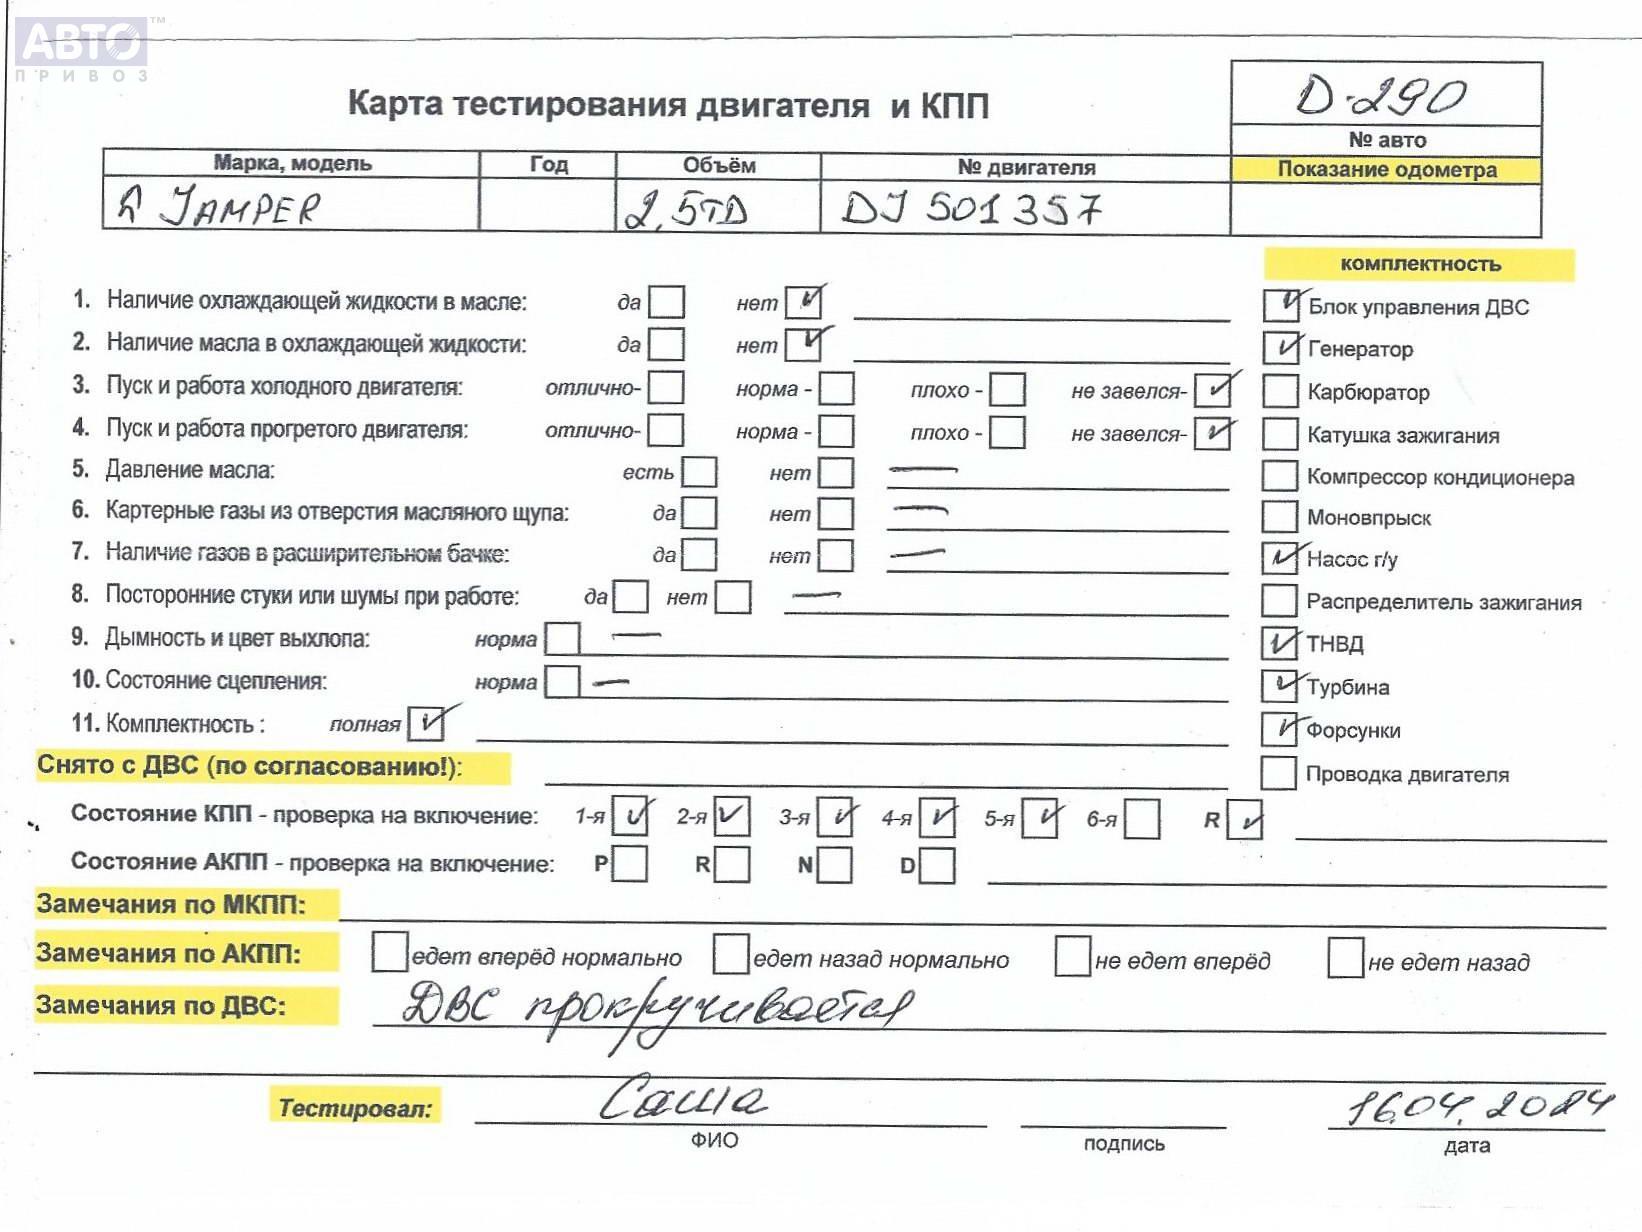 АВТО™
ПРИВОЗ
Карта тестирования двигателя и КПП
D-290
№ авто
Марка, модель Год Объём № двигателя Показание одометра
JAMPER 2,5TD DJ 501357
комплектность
1. Наличие охлаждающей жидкости в масле: да нет ✓
Блок управления ДВС ✓
2. Наличие масла в охлаждающей жидкости: да нет ✓
Генератор ✓
3. Пуск и работа холодного двигателя: отлично- норма - плохо - не завелся- ✓
Карбюратор
4. Пуск и работа прогретого двигателя: отлично- норма - плохо - не завелся- ✓
Катушка зажигания
5. Давление масла: есть нет —
Компрессор кондиционера
6. Картерные газы из отверстия масляного щупа: да нет —
Моновпрыск
7. Наличие газов в расширительном бачке: да нет —
Насос г/у ✓
8. Посторонние стуки или шумы при работе: да нет —
Распределитель зажигания
9. Дымность и цвет выхлопа: норма —
ТНВД ✓
10. Состояние сцепления: норма —
Турбина ✓
11. Комплектность : полная ✓
Форсунки ✓
Снято с ДВС (по согласованию!):
Проводка двигателя
Состояние КПП - проверка на включение: 1-я ✓ 2-я ✓ 3-я ✓ 4-я ✓ 5-я ✓ 6-я R ✓
Состояние АКПП - проверка на включение: P R N D
Замечания по МКПП:
Замечания по АКПП: едет вперёд нормально едет назад нормально не едет вперёд не едет назад
Замечания по ДВС: ДВС прокручивается
Тестировал: Саша 16.04.2024
ФИО подпись дата